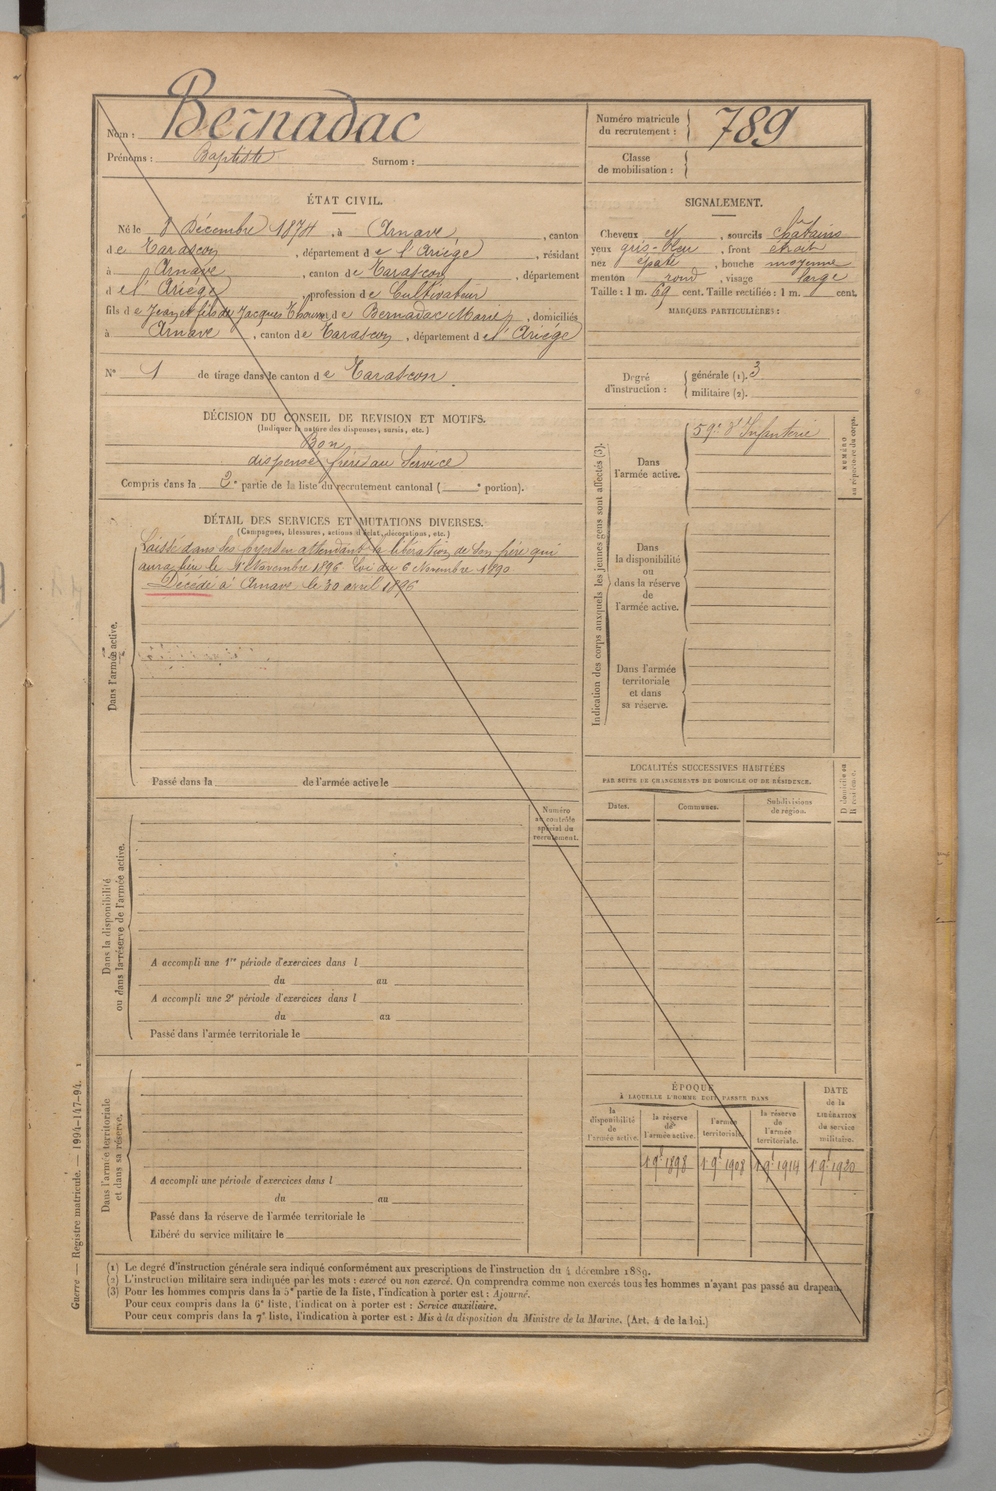 Nom : Bernadac
Prénoms : Baptiste Surnom :
Numéro matricule du recrutement : 789
Classe de mobilisation :
ÉTAT CIVIL.
Né le 8 Décembre 1874, à Arnave, canton
de Tarascon, département de l'Ariége, résidant
à Arnave, canton de Tarascon, département
d el' Ariége, profession de Cultivateur
fils de Jean et fils de Jacques et de Bernadac Marie, domiciliés
à Arnave, canton de Tarascon, département d el' Ariége
N° 1 de tirage dans le canton de Tarascon.
DÉCISION DU CONSEIL DE REVISION ET MOTIFS.
(Indiquer la nature des dispenses, sursis, etc.)
Bon
dispensé frère au Service
Compris dans la 2e partie de la liste du recrutement cantonal ( e portion).
DÉTAIL DES SERVICES ET MUTATIONS DIVERSES.
(Campagnes, blessures, actions d'éclat, décorations, etc.)
Dans l'armée active.
Laissé dans ses foyers en attendant la libération de son frère qui
aura lieu le 1er Novembre 1896 Loi du 6 Novembre 1890
Décédé à Arnave le 30 avril 1896
Passé dans la de l'armée active le
Numéro
au contrôle
spécial du
recrutement.
Dans la disponibilité
ou dans la réserve de l'armée active.
A accompli une 1re période d'exercices dans l
du au
A accompli une 2e période d'exercices dans l
du au
Passé dans l'armée territoriale le
Dans l'armée territoriale
et dans sa réserve.
A accompli une période d'exercices dans l
du au
Passé dans la réserve de l'armée territoriale le
Libéré du service militaire le
SIGNALEMENT.
Cheveux et, sourcils chatains
yeux gris-bleu, front étroit
nez épaté, bouche moyenne
menton rond, visage large
Taille : 1 m. 69 cent. Taille rectifiée : 1 m. cent.
MARQUES PARTICULIÈRES :
Degré
d'instruction :
générale (1). 3
militaire (2).
Indication des corps auxquels les jeunes gens sont affectés (3).
Dans
l'armée active.
59e d'Infanterie
NUMÉRO
au répertoire du corps.
Dans
la disponibilité
ou
dans la réserve
de
l'armée active.
Dans l'armée
territoriale
et dans
sa réserve.
LOCALITÉS SUCCESSIVES HABITÉES
PAR SUITE DE CHANGEMENTS DE DOMICILE OU DE RÉSIDENCE.
Dates.
Communes.
Subdivisions
de région.
D domicile ou
R résidence.
ÉPOQUE
À LAQUELLE L'HOMME DOIT PASSER DANS
la
disponibilité
de
l'armée active.
la réserve
de
l'armée active.
l'armée
territoriale.
la réserve
de
l'armée
territoriale.
DATE
de la
LIBÉRATION
du service
militaire.
1 9e 1898 1 9e 1908 1 9e 1914 1 9e 1920
(1) Le degré d'instruction générale sera indiqué conformément aux prescriptions de l'instruction du 4 décembre 1889.
(2) L'instruction militaire sera indiquée par les mots : exercé ou non exercé. On comprendra comme non exercés tous les hommes n'ayant pas passé au drapeau.
(3) Pour les hommes compris dans la 5e partie de la liste, l'indication à porter est : Ajourné.
Pour ceux compris dans la 6e liste, l'indication à porter est : Service auxiliaire.
Pour ceux compris dans la 7e liste, l'indication à porter est : Mis à la disposition du Ministre de la Marine. (Art. 4 de la loi.)
Guerre — Registre matricule. — 1994-147-94. 1